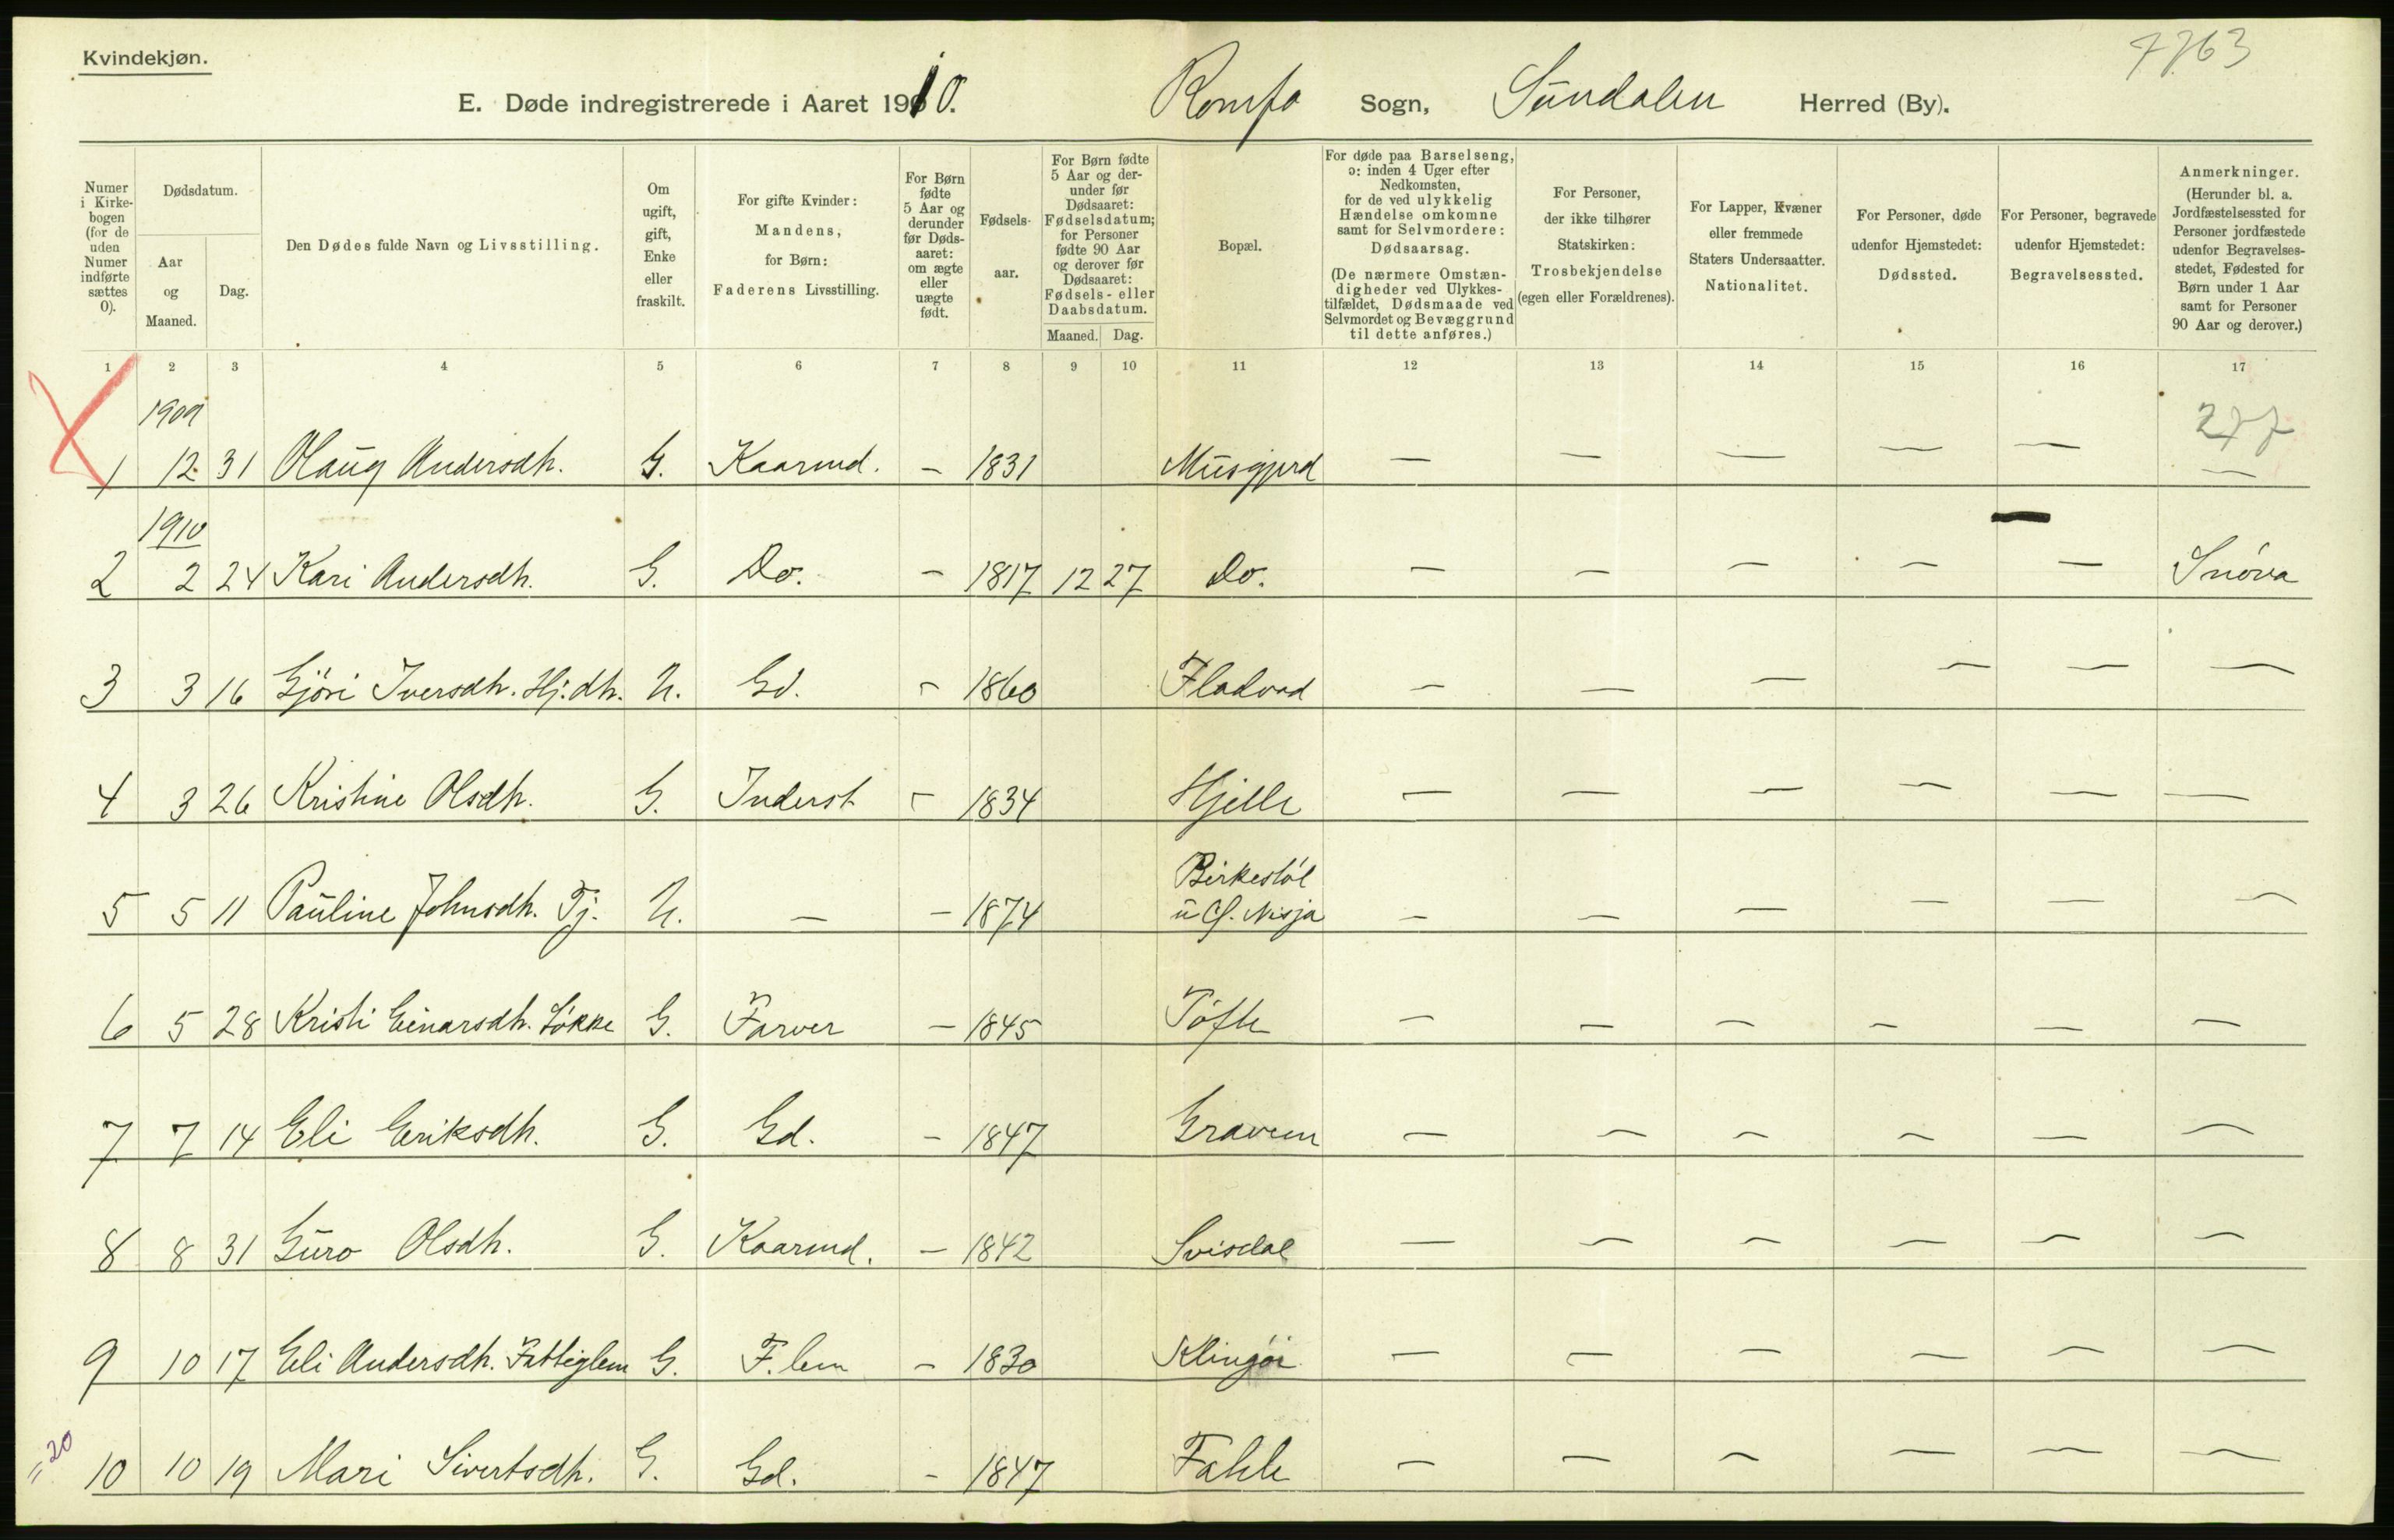 Kvindekjøn.
7763
E. Døde indregistrerede i Aaret 1910. Romfo Sogn, Sundalen Herred (By).
Numer i Kirkebogen (for de uden Numer indførte sættes 0).
Dødsdatum.
Aar og Maaned.
Dag.
Den Dødes fulde Navn og Livsstilling.
Om ugift, gift, Enke eller fraskilt.
For gifte Kvinder: Mandens, for Børn: Faderens Livsstilling.
For Børn fødte 5 Aar og derunder før Dødsaaret: om ægte eller uægte født.
Fødselsaar.
For Børn fødte 5 Aar og derunder før Dødsaaret: Fødselsdatum; for Personer fødte 90 Aar og derover før Dødsaaret: Fødsels- eller Daabsdatum.
Maaned. Dag.
Bopæl.
For døde paa Barselseng, ɔ: inden 4 Uger efter Nedkomsten, for de ved ulykkelig Hændelse omkomne samt for Selvmordere: Dødsaarsag.
(De nærmere Omstændigheder ved Ulykkestilfældet, Dødsmaade ved Selvmordet og Bevæggrund til dette anføres.)
For Personer, der ikke tilhører Statskirken: Trosbekjendelse (egen eller Forældrenes).
For Lapper, Kvæner eller fremmede Staters Undersaatter. Nationalitet.
For Personer, døde udenfor Hjemstedet: Dødssted.
For Personer, begravede udenfor Hjemstedet: Begravelsessted.
Anmerkninger.
(Herunder bl. a. Jordfæstelsessted for Personer jordfæstede udenfor Begravelsesstedet, Fødested for Børn under 1 Aar samt for Personer 90 Aar og derover.)
1 2 3 4 5 6 7 8 9 10 11 12 13 14 15 16 17
1909 277
1 12 31 Olaug Andersdh. G. Kaarmd. — 1831 Musgjerd — — — — — —
1910
2 2 24 Kari Andersdh. G. Do. — 1817 12 27 Do. — — — — — Snöva
3 3 16 Gjöri Iversdh. Hj. dh. U. Gd. — 1860 Fladvad — — — — — —
4 3 26 Kristine Olsdh. G. Inderst — 1834 Hjelle — — — — — —
5 5 11 Pauline Johnsdh. Tj. U. — — 1874 Birkestöl — — — — — —
Nisja
6 5 28 Kristi Einarsdh. Lökke G. Farver — 1845 Töfte — — — — — —
7 7 14 Eli Eriksdh. G. Gd. — 1847 Gravem — — — — — —
8 8 31 Guro Olsdh. G. Kaarmd. — 1842 Svisdal — — — — — —
9 10 17 Eli Andersdh. Fattiglem G. F.lem — 1830 Klingöi — — — — — —
"20
10 10 19 Mari Sivertsdh. G. Gd. — 1847 Fahle — — — — — —